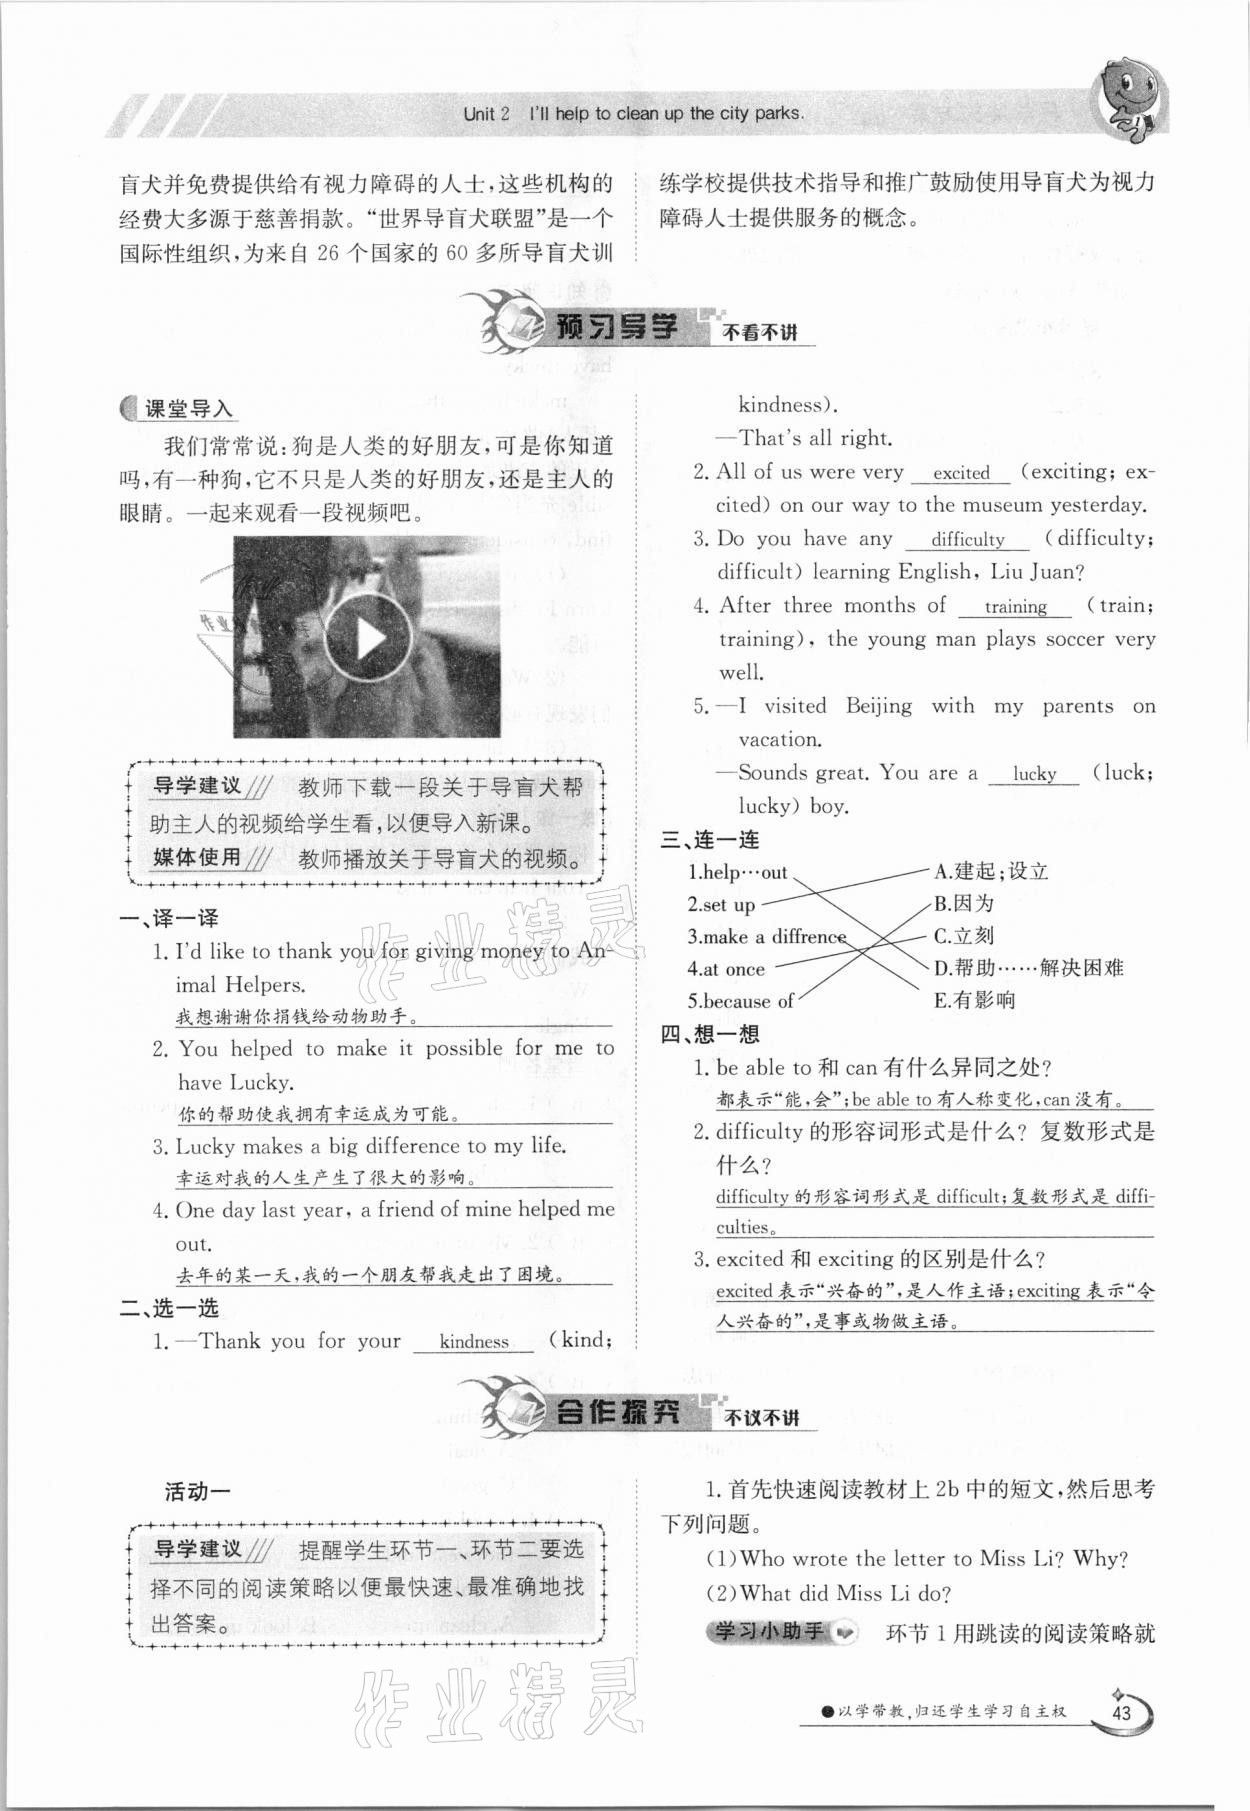 Unit 2 I'll help to clean up the city parks.
盲犬并免费提供给有视力障碍的人士,这些机构的
经费大多源于慈善捐款。“世界导盲犬联盟”是一个
国际性组织,为来自 26 个国家的 60 多所导盲犬训
练学校提供技术指导和推广鼓励使用导盲犬为视力
障碍人士提供服务的概念。
预习导学 不看不讲
课堂导入
我们常常说:狗是人类的好朋友,可是你知道
吗,有一种狗,它不只是人类的好朋友,还是主人的
眼睛。一起来观看一段视频吧。
导学建议 教师下载一段关于导盲犬帮
助主人的视频给学生看,以便导入新课。
媒体使用 教师播放关于导盲犬的视频。
一、译一译
1. I'd like to thank you for giving money to An-
imal Helpers.
我想谢谢你捐钱给动物助手。
2. You helped to make it possible for me to
have Lucky.
你的帮助使我拥有幸运成为可能。
3. Lucky makes a big difference to my life.
幸运对我的人生产生了很大的影响。
4. One day last year, a friend of mine helped me
out.
去年的某一天,我的一个朋友帮我走出了困境。
二、选一选
1. —Thank you for your kindness (kind;
kindness).
—That's all right.
2. All of us were very excited (exciting; ex-
cited) on our way to the museum yesterday.
3. Do you have any difficulty (difficulty;
difficult) learning English, Liu Juan?
4. After three months of training (train;
training), the young man plays soccer very
well.
5. —I visited Beijing with my parents on
vacation.
—Sounds great. You are a lucky (luck;
lucky) boy.
三、连一连
1.help…out A.建起;设立
2.set up B.因为
3.make a diffrence C.立刻
4.at once D.帮助……解决困难
5.because of E.有影响
四、想一想
1. be able to 和 can 有什么异同之处?
都表示“能,会”;be able to 有人称变化,can 没有。
2. difficulty 的形容词形式是什么? 复数形式是
什么?
difficulty 的形容词形式是 difficult;复数形式是 diffi-
culties。
3. excited 和 exciting 的区别是什么?
excited 表示“兴奋的”,是人作主语;exciting 表示“令
人兴奋的”,是事或物做主语。
合作探究 不议不讲
活动一
导学建议 提醒学生环节一、环节二要选
择不同的阅读策略以便最快速、最准确地找
出答案。
1. 首先快速阅读教材上 2b 中的短文,然后思考
下列问题。
(1)Who wrote the letter to Miss Li? Why?
(2)What did Miss Li do?
学习小助手 环节 1 用跳读的阅读策略就
●以学带教,归还学生学习自主权 43
作业精灵
作业精灵